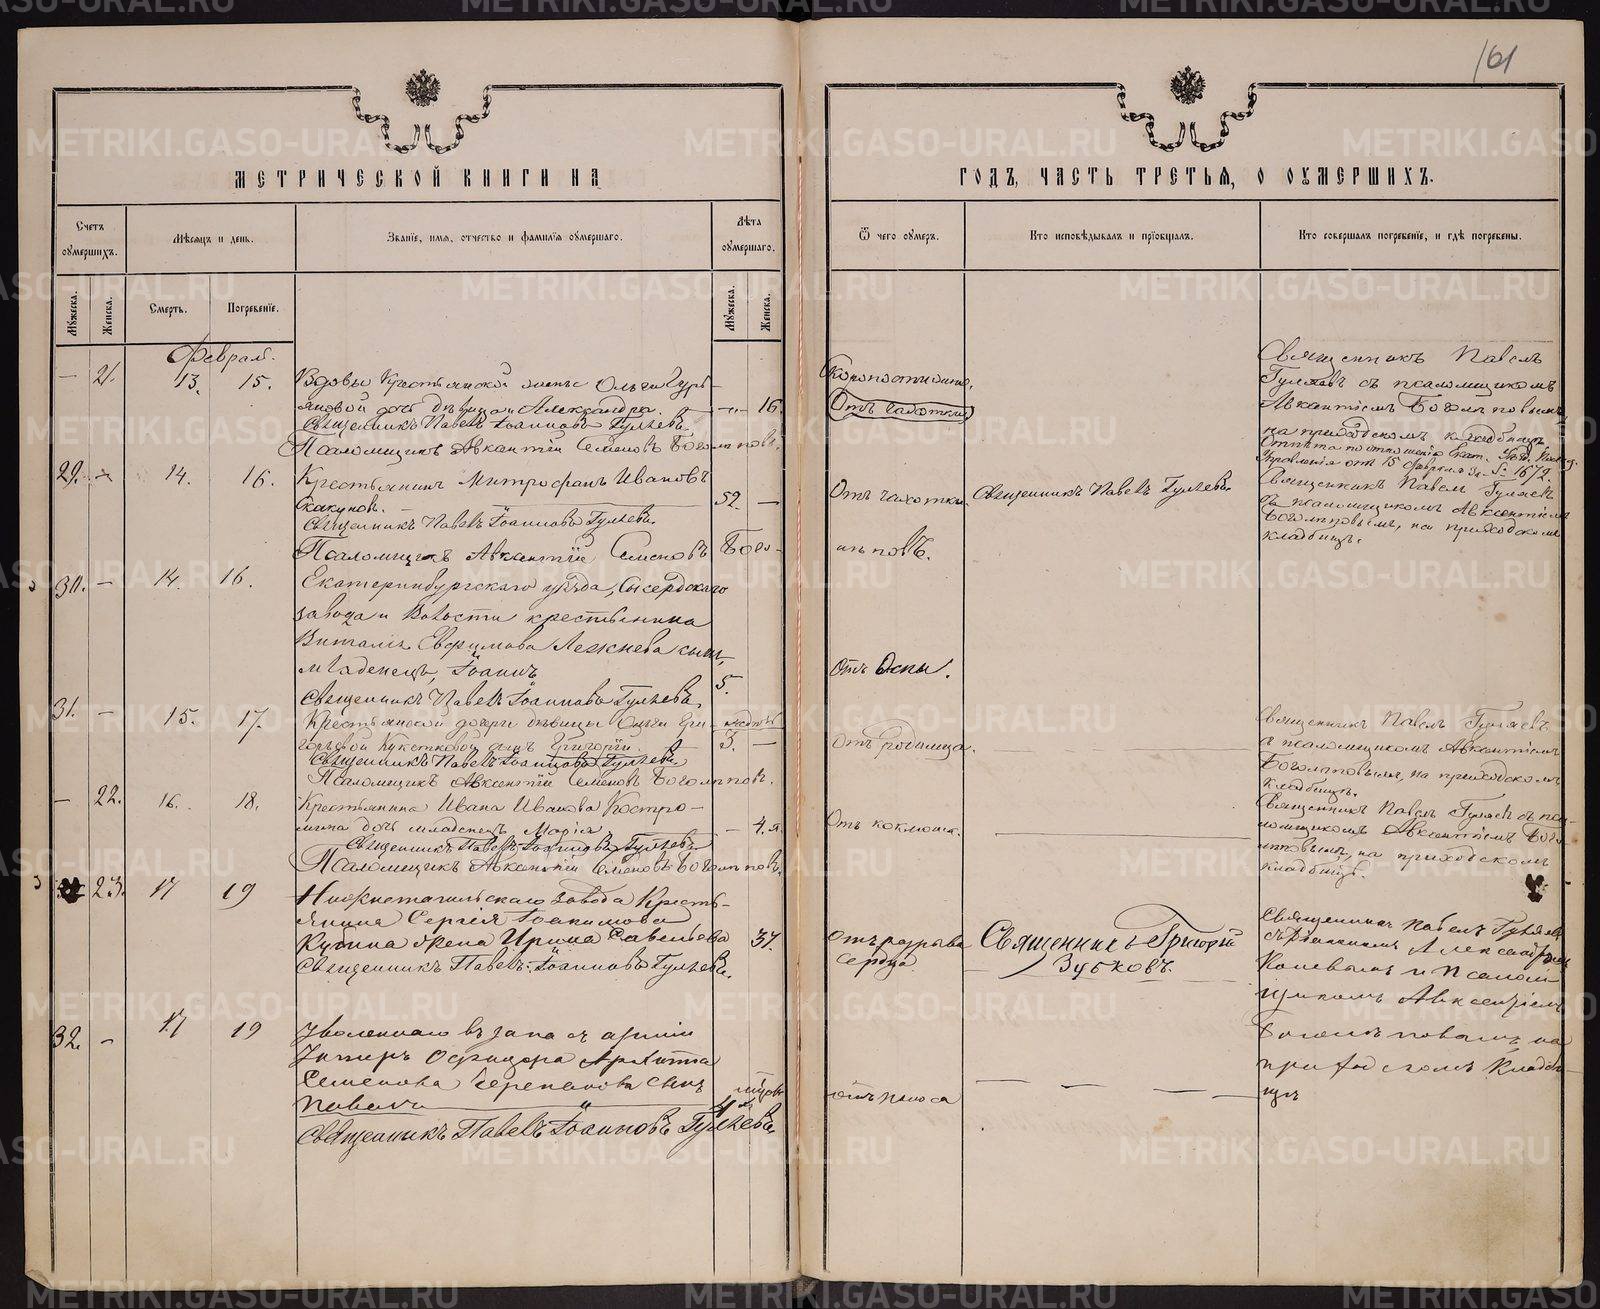 161
МЕТРИЧЕСКОЙ КНИГИ НА
ГОДЪ, ЧАСТЬ ТРЕТЬЯ, О ОУМЕРШИХЪ.
Счетъ оумершихъ.
Мѣсяцъ и день.
Званіе, имя, отчество и фамилія оумершаго.
Лѣта оумершаго.
Ѿ чего оумеръ.
Кто исповѣдывалъ и пріобщалъ.
Кто совершалъ погребеніе, и гдѣ погребены.
Мужеска.
Женска.
Смерть.
Погребеніе.
Мужеска.
Женска.
Феврал.
— 21. 13. 15.
Вдовы крестьянской жены Ольги
дочь дѣвица Александра. — 16.
Священникъ Павелъ Іоанновъ Гуляевъ.
Псаломщикъ Авксентій Семеновъ Боголѣповъ.
Скоропостижно.
Отъ чахотки
Священникъ Павелъ
Гуляевъ съ псаломщикомъ
Авксентіемъ Боголѣповымъ,
на приходскомъ кладбищѣ.
Управленія отъ 15 Февраля за № 1672.
29. — 14. 16.
Крестьянинъ Митрофанъ Ивановъ
Скакуновъ. 52. —
Священникъ Павелъ Іоанновъ Гуляевъ.
Псаломщикъ Авксентій Семеновъ Бого-
лѣповъ.
Отъ чахотки
Священникъ Павелъ Гуляевъ.
Священникъ Павелъ Гуляевъ
съ псаломщикомъ Авксентіемъ
Боголѣповымъ, на приходскомъ
кладбищѣ.
30. — 14. 16.
Екатеринбургскаго уѣзда, Сысертскаго
завода и волости крестьянина
Виталія Евфимова Лежнева сынъ,
младенецъ, Іоаннъ 5.
Священникъ Павелъ Іоанновъ Гуляевъ.
Отъ Оспы.
31. — 15. 17.
Крестьянской дочери дѣвицы Ольги Гри-
горьевой сынъ Григорій. 3. —
Священникъ Павелъ Іоанновъ Гуляевъ.
Псаломщикъ Авксентій Семеновъ Боголѣповъ.
Отъ родимца.
Священникъ Павелъ Гуляевъ
съ псаломщикомъ Авксентіемъ
Боголѣповымъ, на приходскомъ
кладбищѣ.
— 22. 16. 18.
Крестьянина Ивана Иванова Костро-
мина дочь младенецъ Марія — 4.
Священникъ Павелъ Іоанновъ Гуляевъ
Псаломщикъ Авксентій Семеновъ Боголѣповъ.
Отъ коклюша.
Священникъ Павелъ Гуляевъ съ пса-
ломщикомъ Авксентіемъ Бого-
лѣповымъ, на приходскомъ
кладбищѣ.
23. 17 19
Нижнетагильскаго завода Кресть-
янина Сергія Іоакимова
жена Ирина Савельева 37.
Священникъ Павелъ Іоанновъ Гуляевъ.
Отъ разрыва
сердца
Священникъ Григорій
Зубковъ.
Священникъ Павелъ Гуляевъ
съ Діакономъ Александромъ
и Псалом-
щикомъ Авксентіемъ
Боголѣповымъ на
приходскомъ Кладби-
щѣ
32. — 17 19
Уволеннаго въ запасъ арміи
Унтеръ Офицера Архипа
Семенова Черепанова сынъ
Павелъ 4
Священникъ Павелъ Іоанновъ Гуляевъ.
отъ поноса
METRIKI.GASO-URAL.RU